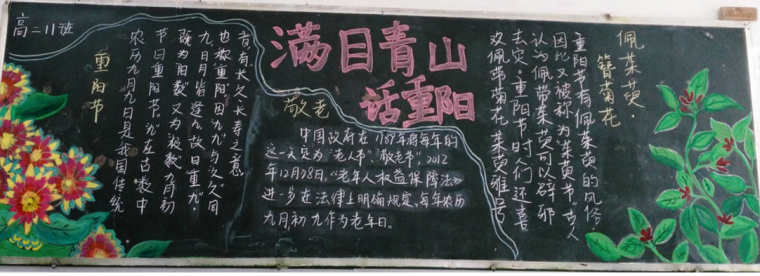 高二11班
满目青山
话重阳
重阳节
农历九月九日是我国传统
节日重阳节，九在古数中
既为阳数又为极数九月初
九日月皆逢九，故曰重九，
也称重阳因九九与久久同
音有长久长寿之意
敬老
中国政府在1989年将每年的
这一天定为“老人节”“敬老节”，2012
年12月28日，《老年人权益保障法》
进一步在法律上明确规定，每年农历
九月初九作为老年日。
佩茱萸·
簪菊花
重阳节有佩茱萸的风俗
因此又被称为茱萸节，古人
认为佩带茱萸可以辟邪
去灾·重阳节时人们还喜
欢佩带菊花，茱萸雅号